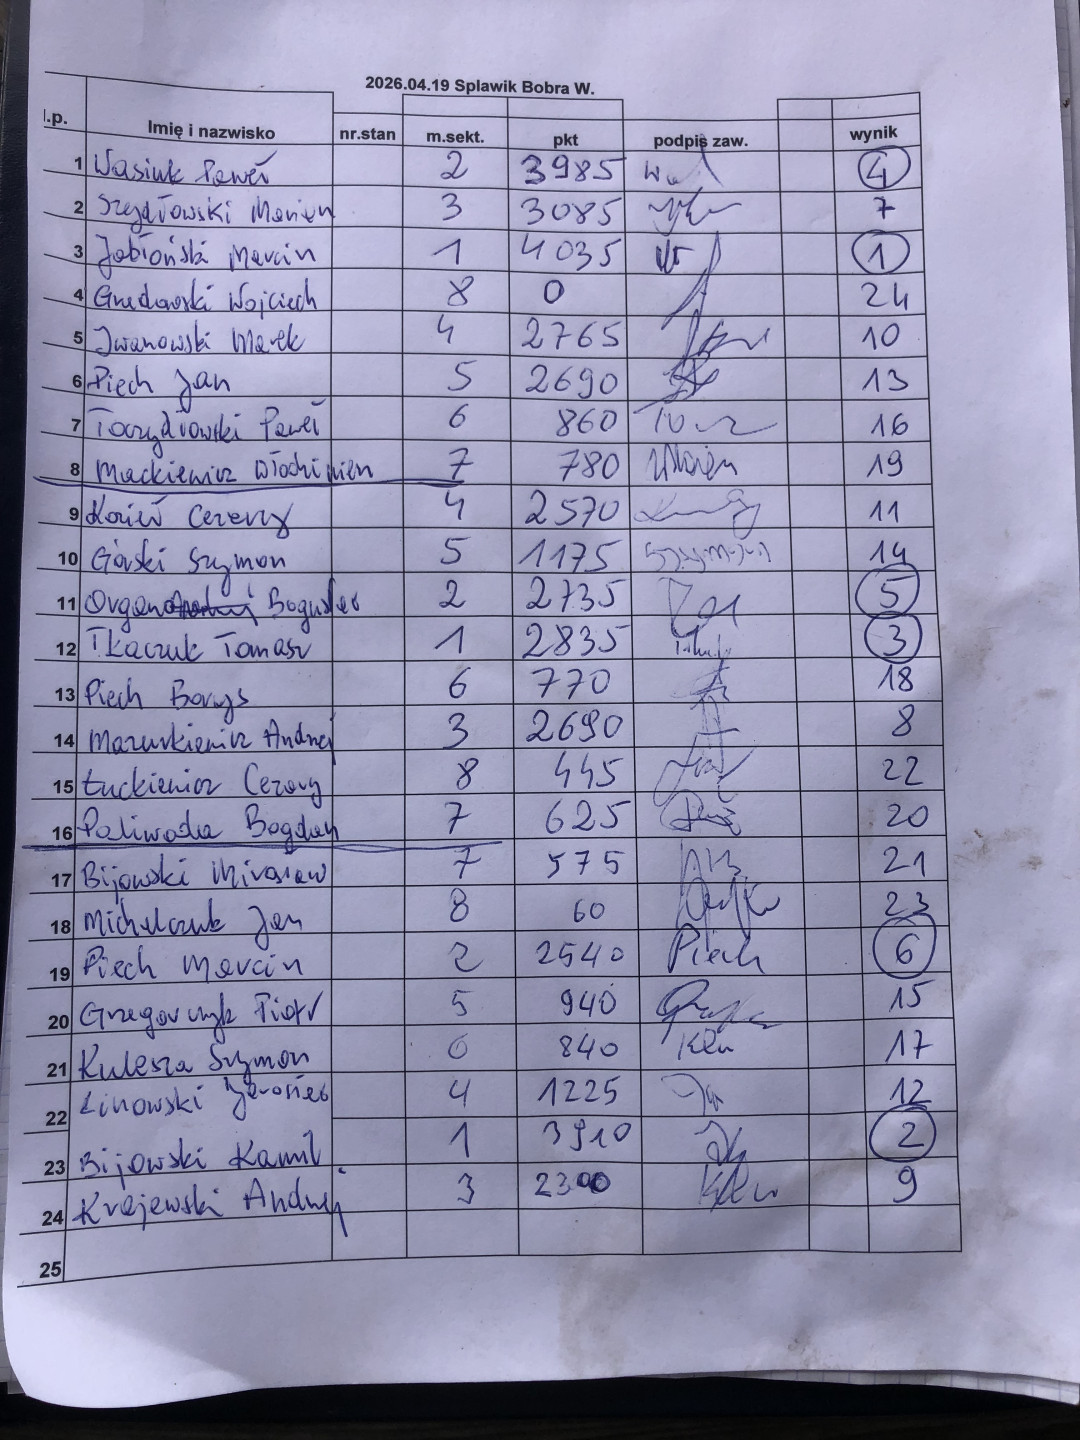 2026.04.19 Splawik Bobra W.
l.p. Imię i nazwisko nr.stan m.sekt. pkt podpis zaw. wynik
1 Wasiuk Paweł 2 3985 4
2 Szydłowski Marian 3 3085 7
3 Jabłoński Marcin 1 4035 1
4 Grochowski Wojciech 8 0 24
5 Iwanowski Marek 4 2765 10
6 Piech Jan 5 2690 13
7 Toczydłowski Paweł 6 860 16
8 Mackiewicz Włodzimierz 7 780 19
9 Kozieł Cezary 4 2570 11
10 Górski Szymon 5 1175 Szymon 14
11 Bogusław 2 2735 5
12 Tkaczuk Tomasz 1 2835 3
13 Piech Borys 6 770 18
14 Mazurkiewicz Andrzej 3 2690 8
15 Łuckiewicz Cezary 8 445 22
16 Paliwoda Bogdan 7 625 20
17 Bijowski Mirosław 7 575 21
18 Michalczuk Jan 8 60 23
19 Piech Marcin 2 2540 Piech 6
20 Grzegorczyk Piotr 5 940 15
21 Kulesza Szymon 6 840 17
22 Linowski Jarosław 4 1225 12
23 Bijowski Kamil 1 3910 2
24 Krajewski Andrzej 3 9
25